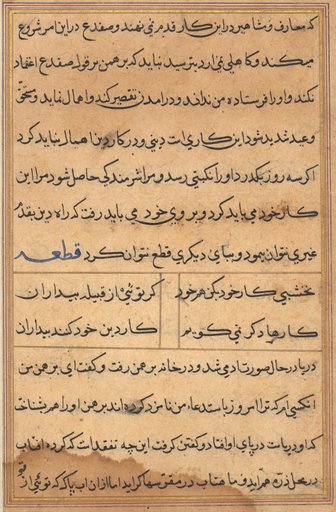 که معارف و مشاهیر در این کار قدم می نهند و ضفدع در این امر شروع
میکند و کاهلی می آرد بترسید نباید که برهمن بر قول ضفدع اعتماد
نکند و او را فرستاده من نداند و در آمدن تقصیر کند و اهمال نماید و مستحق
وعید شدید شود این کاری است دینی و در کار دین اهمال نباید کرد
اگر سه روز بگذرد او را نکبتی رسد و مرا شرمندگی حاصل شود مرا این
کار خود می باید کرد و بر وی خود می باید رفت که راه دین بقدم
غیری نتوان پیمود و بپای دیگری قطع نتوان کرد قطعه
نخشبی کار خود بکن هر خود گر تویی از قبیله بیداران
کارها دگر نمی گویم کار دین خود کنند بیداران
دریا در حال صورت آدمی شد و در خانه برهمن رفت و گفت ای برهمن من
آنکسی ام که ترا امروز باستدعاء من نامزد کرده اند برهمن او را هم شناخت
که او دریاست در پای او افتاد و گفتن گرفت این چه تفقدات که کرده آفتاب
در محل ذره هم آید و ماهتاب در مقر سها گراید اما از آن آب پاک که تویی از تو